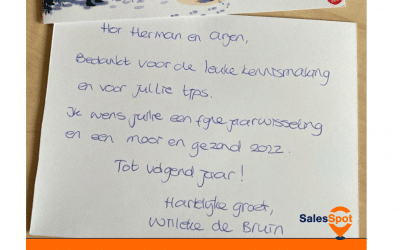 Hoi Herman en Arjen,
Bedankt voor de leuke kennismaking
en voor jullie tips.
Ik wens jullie een fijne jaarwisseling
en een mooi en gezond 2022.
Tot volgend jaar!
Hartelijke groet,
Willeke de Bruin
SalesSpot